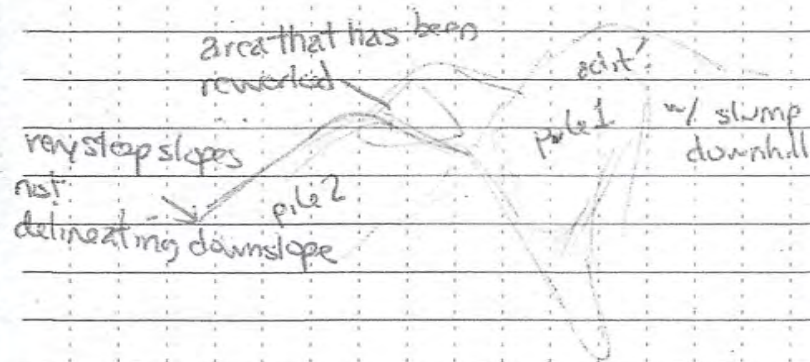 area that has been
reworked
exist'
pile 1
w/ slump
downhill
very steep slopes
not
delineating downslope
pile 2